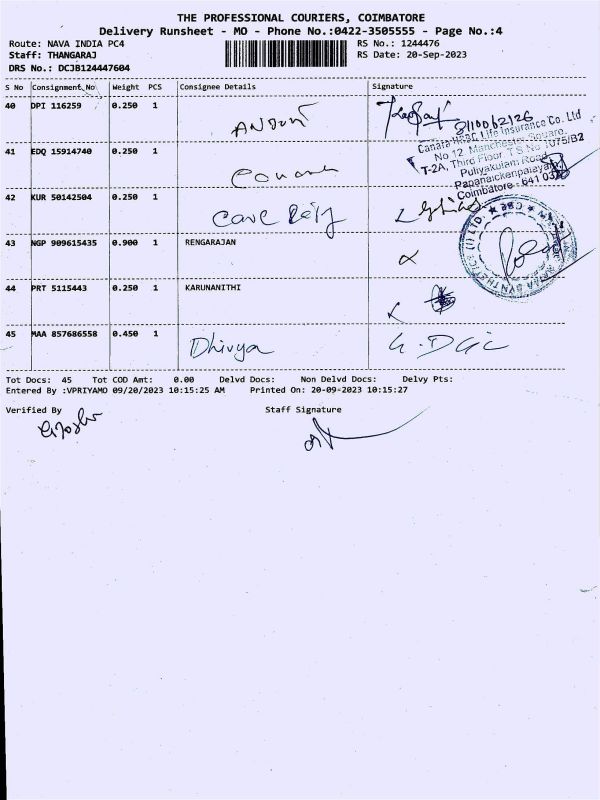 THE PROFESSIONAL COURIERS, COIMBATORE
Delivery Runsheet - MO - Phone No.:0422-3505555 - Page No.:4
Route: NAVA INDIA PC4
RS No.: 1244476
Staff: THANGARAJ
RS Date: 20-Sep-2023
DRS No.: DCJB124447604
S No Consignment No Weight PCS Consignee Details Signature
40 DPI 116259 0.250 1
8110062126
41 EDQ 15914740 0.250 1
Canara HSBC Life Insurance Co. Ltd
No 12 Manchester Square,
T-2A, Third Floor T.S No 1075/B2
Puliyakulam Road
Papanaickenpalayam
Coimbatore - 641 037
42 KUR 50142504 0.250 1 Care
43 NGP 909615435 0.900 1 RENGARAJAN
44 PRT 5115443 0.250 1 KARUNANITHI
45 MAA 857686558 0.450 1 Dhivya
Tot Docs: 45 Tot COD Amt: 0.00 Delvd Docs: Non Delvd Docs: Delvy Pts:
Entered By :VPRIYAMO 09/20/2023 10:15:25 AM Printed On: 20-09-2023 10:15:27
Verified By Staff Signature